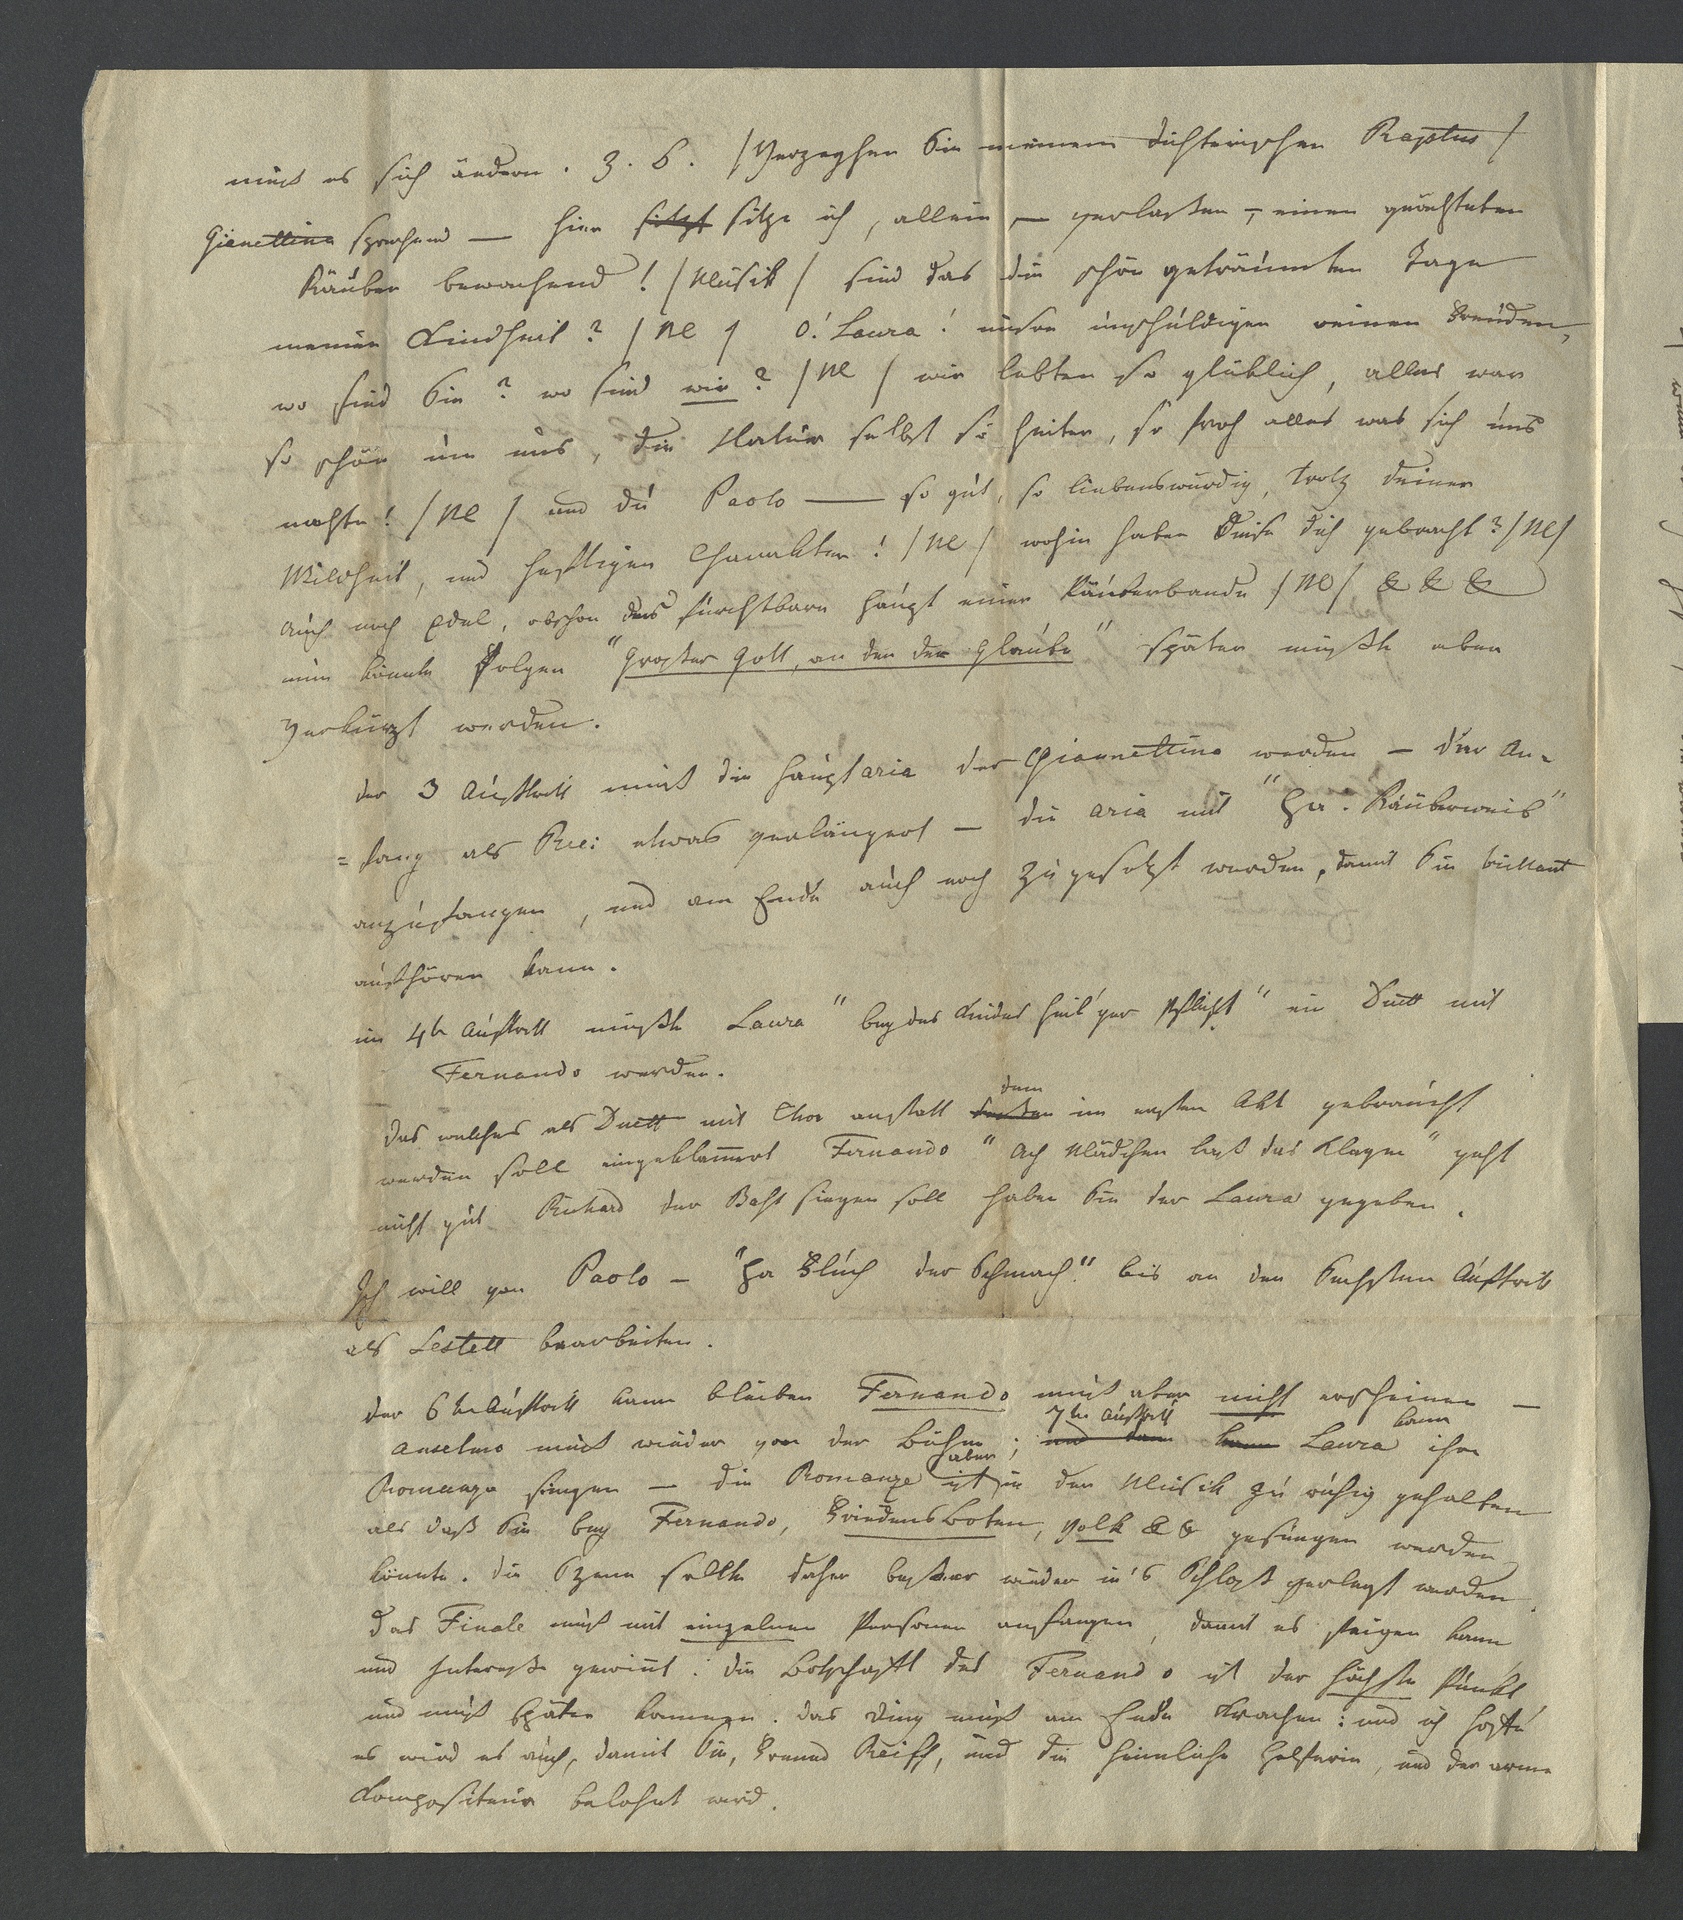 muß es sich ändern. Z. B. /Verzeyhen Sie meinem dichterischen Raptus/
Gianettina sprechend — hier sitzt sitze ich, allein — verlaßen —, einen geächteten
Räuber bewachend! /Musik/ sind das die schön geträumten Tage
meiner Kindheit? /M/ O! Laura! unsre unschuldigen reinen Freuden,
wo sind Sie? wo sind wir? /M/ wir lebten so glücklich, alles war
so schön um uns, die Natur selbst so heiter, so froh alles was sich uns
nahte! /M/ und du Paolo — so gut, so liebenswürdig, trotz deiner
Wildheit, und heftigen Charakter! /M/ wohin haben diese dich gebracht? /M/
auch noch Edel, obschon das furchtbare Haupt einer Räuberbande /M/ & & &
nun könnte folgen "Großer Gott, an den der Glaube" später müßte aber
verkürzt werden.
der 3 Auftritt muß die Hauptaria der Gianettina werden — der An=
=fang als Rec: etwas verlängert — die aria mit "Ha! Räuberweib"
anzufangen, und am Ende auch noch zugesetzt werden, damit Sie brillant
aufhören kann.
im 4te Auftritt müßte Laura "bey des Kindes heil'ger Pflicht" ein Duett mit
Fernando werden.
das welches als Duett mit Chor anstatt dem im ersten Akt gebraucht
werden soll eingeklam̅ert Fernando "Ach Mädchen laß das Klagen" geht
nicht gut Richard der Baß singen soll haben Sie der Laura gegeben.
Ich will von Paolo — "Ha Fluch der Schmach!" bis an den Sechsten Auftritt
als Sestett bearbeiten.
der 6te Auftritt kann bleiben Fernando muß aber nicht erscheinen —
Anselmo muß wieder von der Bühne; 7te Auftritt und dann kann Laura kann ihre
Romanze singen — die Romanze aber ist in der Musik zu ruhig gehalten
als daß Sie bey Fernando, Friedensboten, Volk & & gesungen werden
könnte. die Szene sollte daher beßer wieder in's Schloß verlegt werden.
das Finale muß mit einzelnen Personen anfangen, damit es steigen kann
und Intereße gewin̅t: die Botschaft des Fernando ist der höchste Punkt
und muß später kommen. das Ding muß am Ende Krachen: und ich hoffe
es wird es auch, damit Sie, Freund Reiff, und die heimliche Helferin, und der arme
Kompositeur belohnt wird.